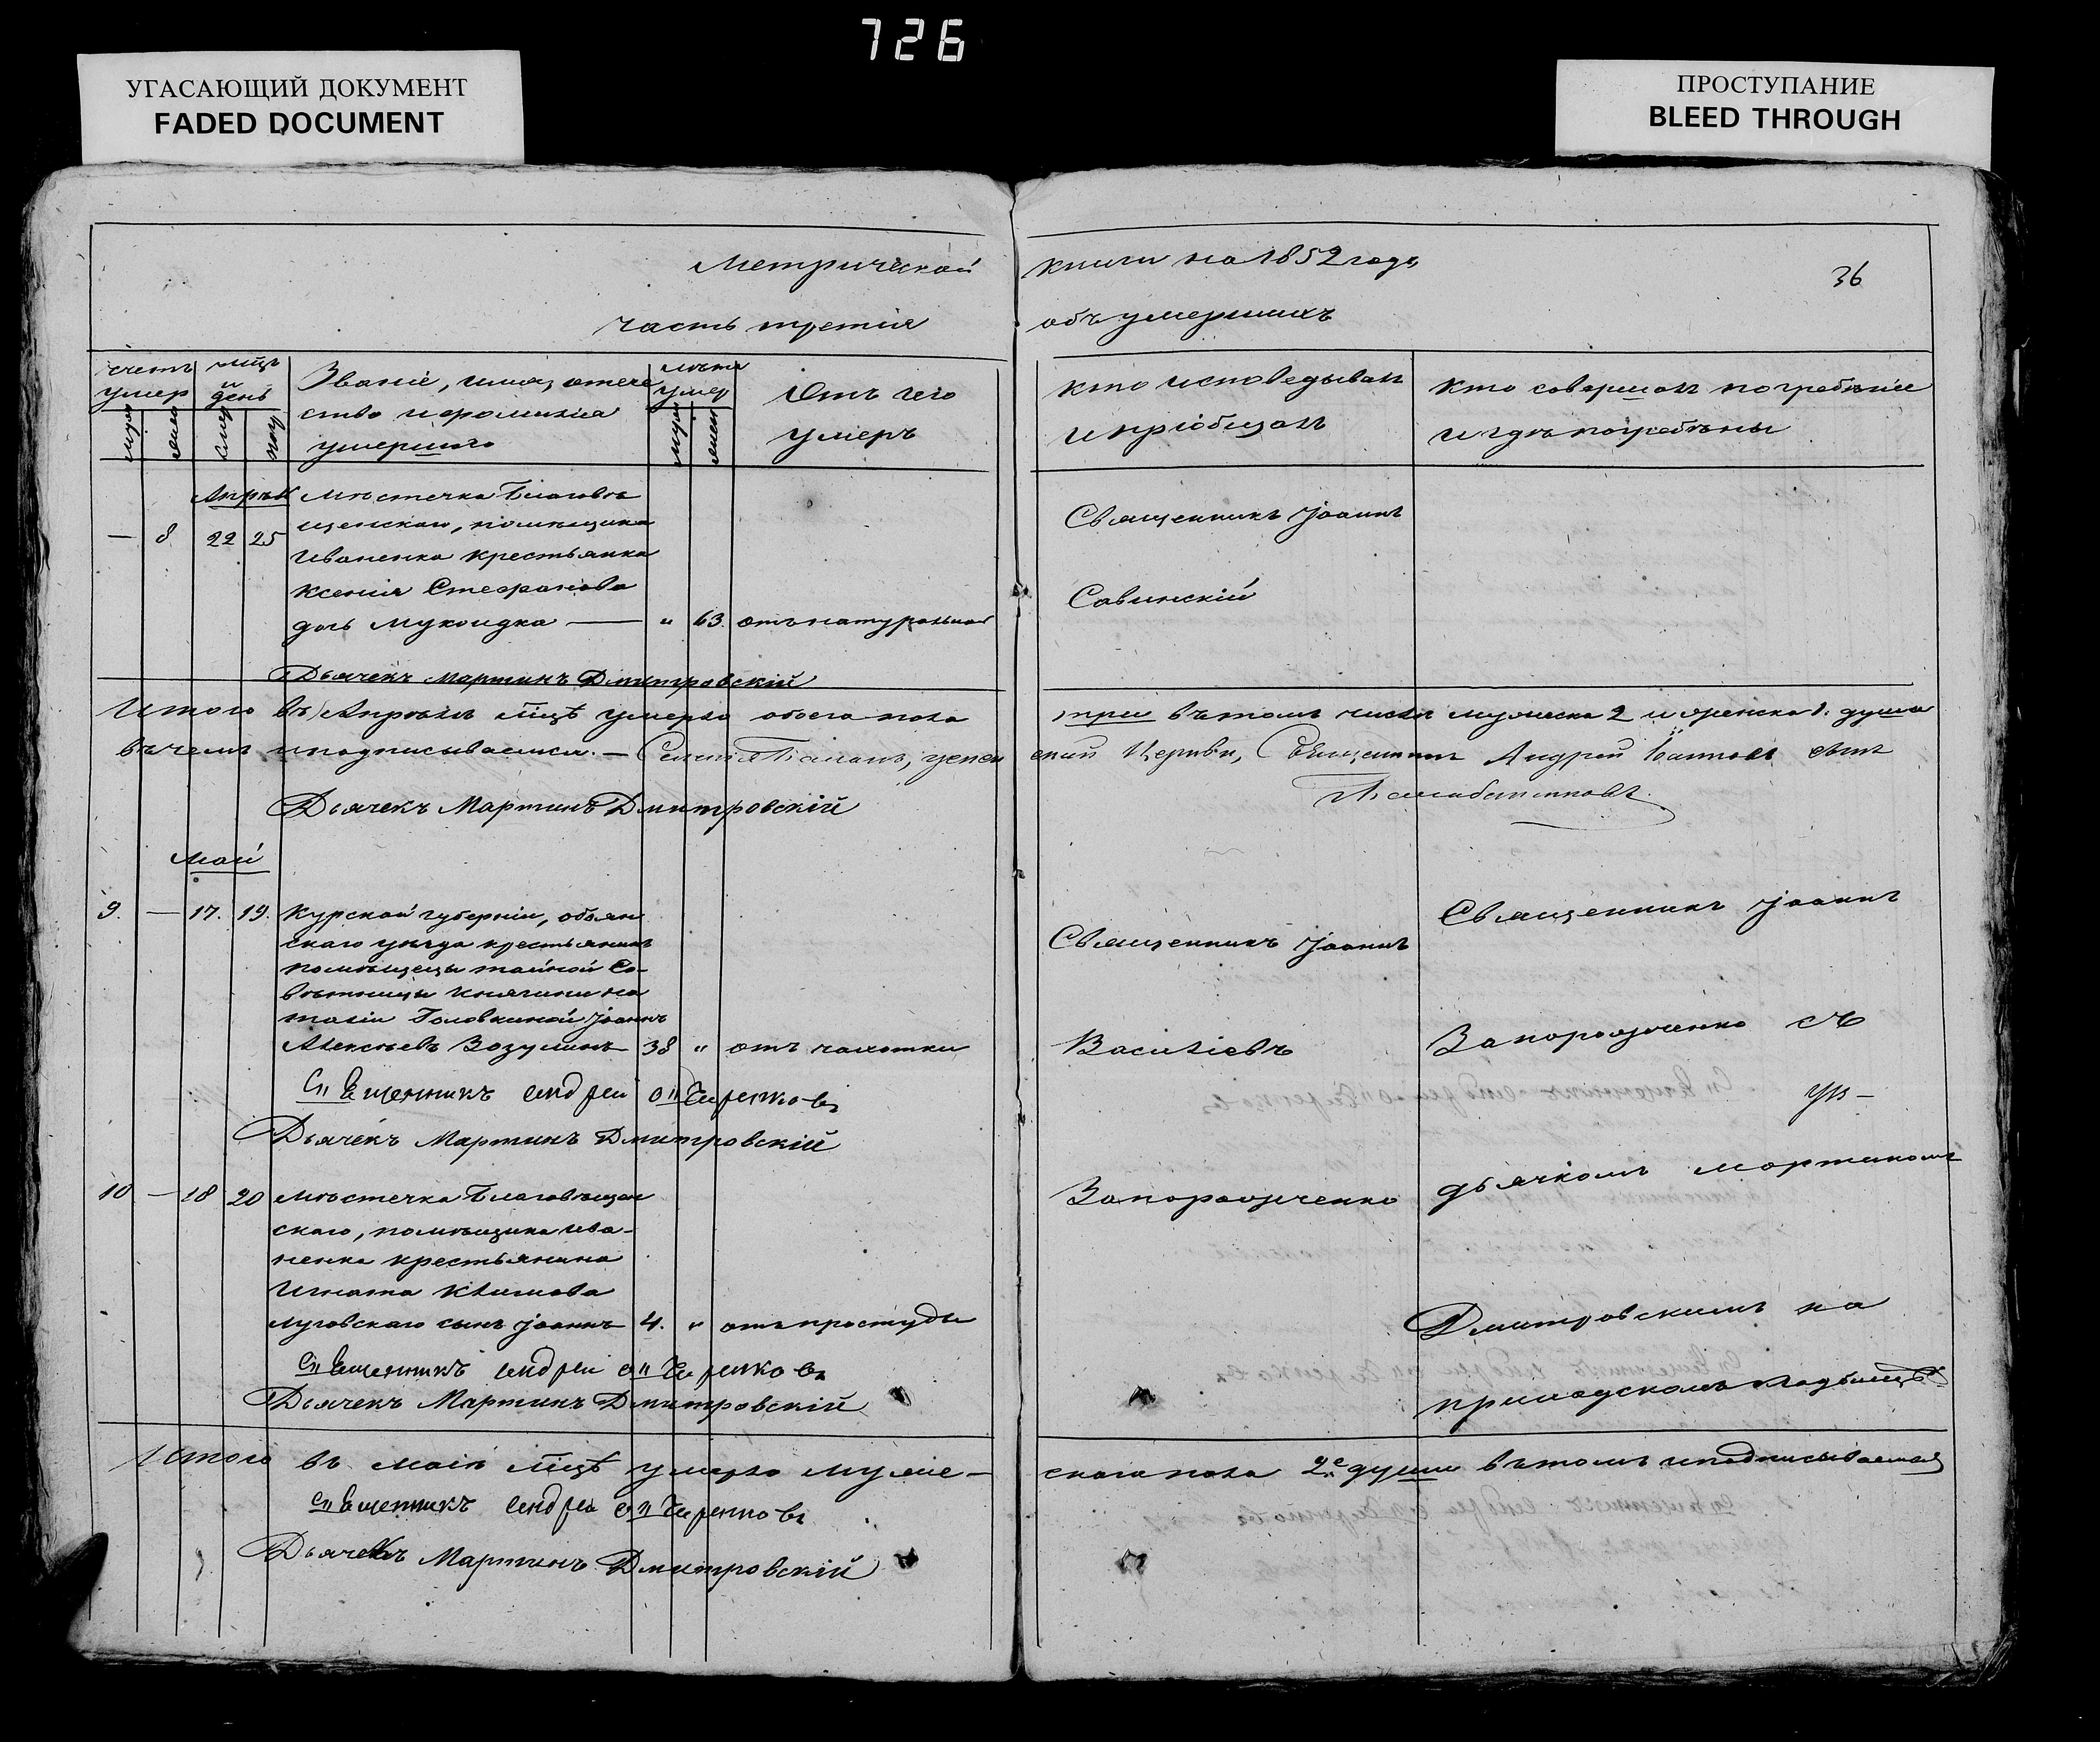 726
УГАСАЮЩИЙ ДОКУМЕНТ
FADED DOCUMENT
ПРОСТУПАНИЕ
BLEED THROUGH
Метрической книги на 1852 годъ
36
часть третія объ умершихъ
счетъ умер
муж
жен
мцъ и день
смер
Званіе, имя, отече
ство и фамилія
умершаго
лѣта умер
муж
жен
Отъ чего
умеръ
Кто исповедывалъ
и пріобщалъ
Кто совершалъ погребѣніе
и гдѣ погребѣны
Апрѣл
— 8 22 25
Мѣстечка Благовѣ
щенскаго, помѣщика
Иваненка крестьянка
Ксенія Стефанова
дочь Мукоидка — " 63. отъ натуральной
Священникъ Іоаннъ
Савинскій
Дьячекъ Мартинъ Дмитровскій
Итого въ Апрѣлѣ мцѣ умерло обоего пола три въ томъ числѣ мужеска 2 и женска 1. душа
въ чемъ и подписываемся. — Церкви, Священникъ Андрей
Дьячекъ Мартинъ Дмитровскій
Май
9. — 17. 19. Курской губерніи, обоян
скаго уѣзда крестьянинъ
помѣщецы тайной Со-
вѣтницы княгини На
таліи Головкиной Іоаннъ
Алексѣевъ Возулинъ 38 " отъ чахотки
Священникъ Іоаннъ
Василіевъ
Запорожченко
Священникъ Іоаннъ
Запорожченко съ
дьячкомъ Мартиномъ
Дмитровскимъ на
приходскомъ кладбищѣ
Дьячекъ Мартинъ Дмитровскій
10 — 18 20 Мѣстечка Благовѣщен
скаго, помѣщика Ива-
ненка крестьянина
Игната Климова
Луговскаго сынъ Іоаннъ 4. " отъ простуды
Дьячекъ Мартинъ Дмитровскій
Итого въ маіи мцѣ умерло муже- скаго пола 2е души въ томъ и подписываемся
Дьячекъ Мартинъ Дмитровскій